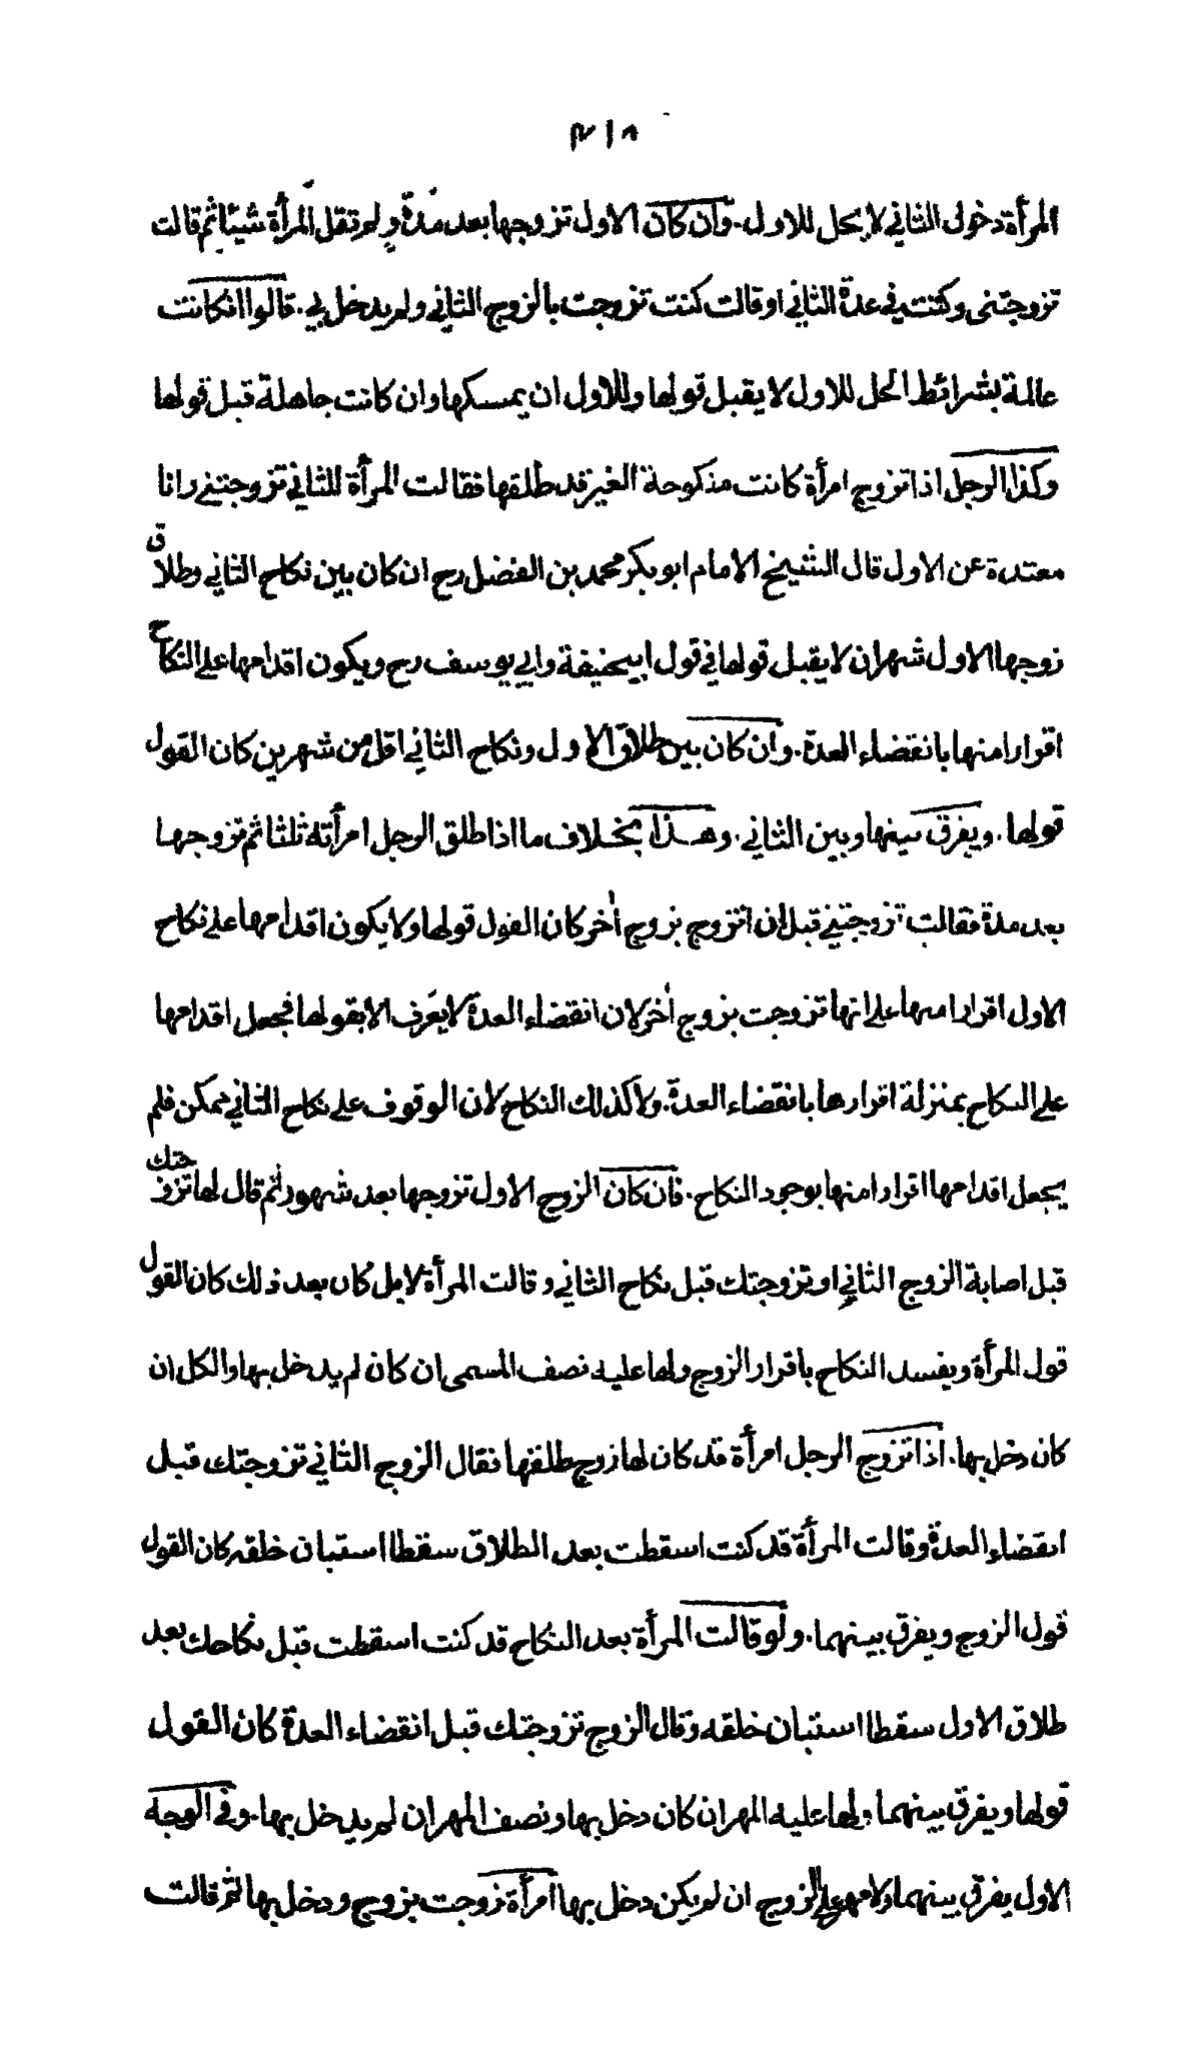 ٣١٨
المرأة دخولى الثاني لا يحل للاول. وان كان الاول تزوجها بعد مدة ولم تقل المرأة شيئا ثم قالت
تزوجتنى وكنت في عدة الثاني او قالت كنت تزوجت بالزوج الثاني ولم يدخل بي. قالوا انكانت
عالمة بشرائط الحل للاول لا يقبل قولها وللاول ان يمسكها وان كانت جاهلة قبل قولها
وكذا الرجل اذا تزوج امرأة كانت منكوحة الغير قد طلقها فقالت المرأة للثاني تزوجتني وانا
معتدة عن الاول قال الشيخ الامام ابو بكر محمد بن الفضل رح ان كان بين نكاح الثاني وطلاق
زوجها الاول شهران لا يقبل قولها في قول ابيحنيفة وابي يوسف رح ويكون اقدامها على النكاح
اقرارا منها بانقضاء العدة. وان كان بين طلاق الاول ونكاح الثاني اقل من شهرين كان القول
قولها. ويفرق بينها وبين الثاني. وهذا بخلاف ما اذا طلق الرجل امرأته ثلثا ثم تزوجها
بعد مدة فقالت تزوجتني قبل ان اتزوج بزوج اٰخر كان القول قولها ولا يكون اقدامها على نكاح
الاول اقرارا منها على انها تزوجت بزوج اٰخر لان انقضاء العدة لا يعرف الا بقولها فجعل اقدامها
على النكاح بمنزلة اقرارها بانقضاء العدة. ولا كذلك النكاح لان الوقوف على نكاح الثاني ممكن فلم
يجعل اقدامها اقرارا منها بوجود النكاح. فان كان الزوج الاول تزوجها بعد شهور ثم قال لها تزوجتك
قبل اصابة الزوج الثاني او تزوجتك قبل نكاح الثاني وقالت المرأة لا بل كان بعد ذلك كان القول
قول المرأة ويفسد النكاح باقرار الزوج ولها عليه نصف المسمى ان كان لم يدخل بها والكل ان
كان دخل بها. اذا تزوج الرجل امرأة قد كان لها زوج طلقها فقال الزوج الثاني تزوجتك قبل
انقضاء العدة وقالت المرأة قد كنت اسقطت بعد الطلاق سقطا استبان خلقه كان القول
قول الزوج ويفرق بينهما. ولو قالت المرأة بعد النكاح قد كنت اسقطت قبل نكاحك بعد
طلاق الاول سقطا استبان خلقه وقال الزوج تزوجتك قبل انقضاء العدة كان القول
قولها ويفرق بينهما ولها عليه المهر ان كان دخل بها ونصف المهر ان لم يدخل بها. وفي الوجه
الاول يفرق بينهما ولا مهر على الزوج ان لم يكن دخل بها امرأة تزوجت بزوج ودخل بها ثم قالت